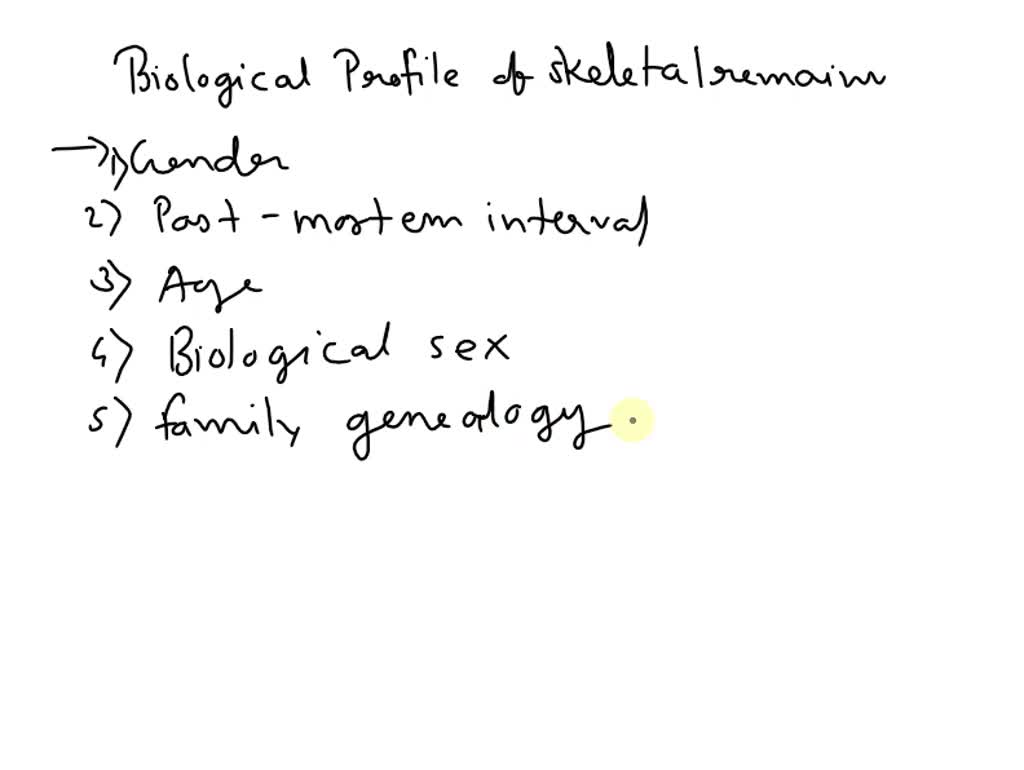 Biological Profile of skeletal remains
→ 1) Gender
2) Post-mortem interval
3) Age
4) Biological sex
5) family genealogy